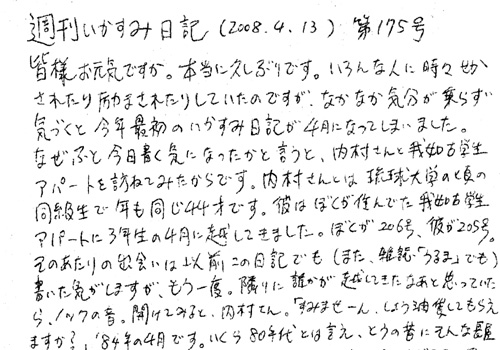 週刊いかすみ日記（2008.4.13）第175号
皆様お元気ですか。本当に久しぶりです。いろんな人に時々せか
されたり励まされたりしていたのですが、なかなか気分が乗らず
気づくと今年最初のいかすみ日記が4月になってしまいました。
なぜふと今日書く気になったかと言うと、内村さんと我如古学生
アパートを訪ねてみたからです。内村さんとは琉球大学の
同級生で年も同じ44才です。彼はぼくが住んでた我如古学生
アパートに3年生の4月に越してきました。ぼくが206号、彼が205号。
そのあたりの出会いは以前この日記でも（また、雑誌「うるま」でも）
書いた気がしますが、もう一度。隣りに誰かが越してきたなあと思っていた
ら、ノックの音。開けてみると、内村さん。「すみませーん、しょう油貸してもらえ
ますか？」'84年の4月です。いくら80年代とは言え、とうの昔にそんな